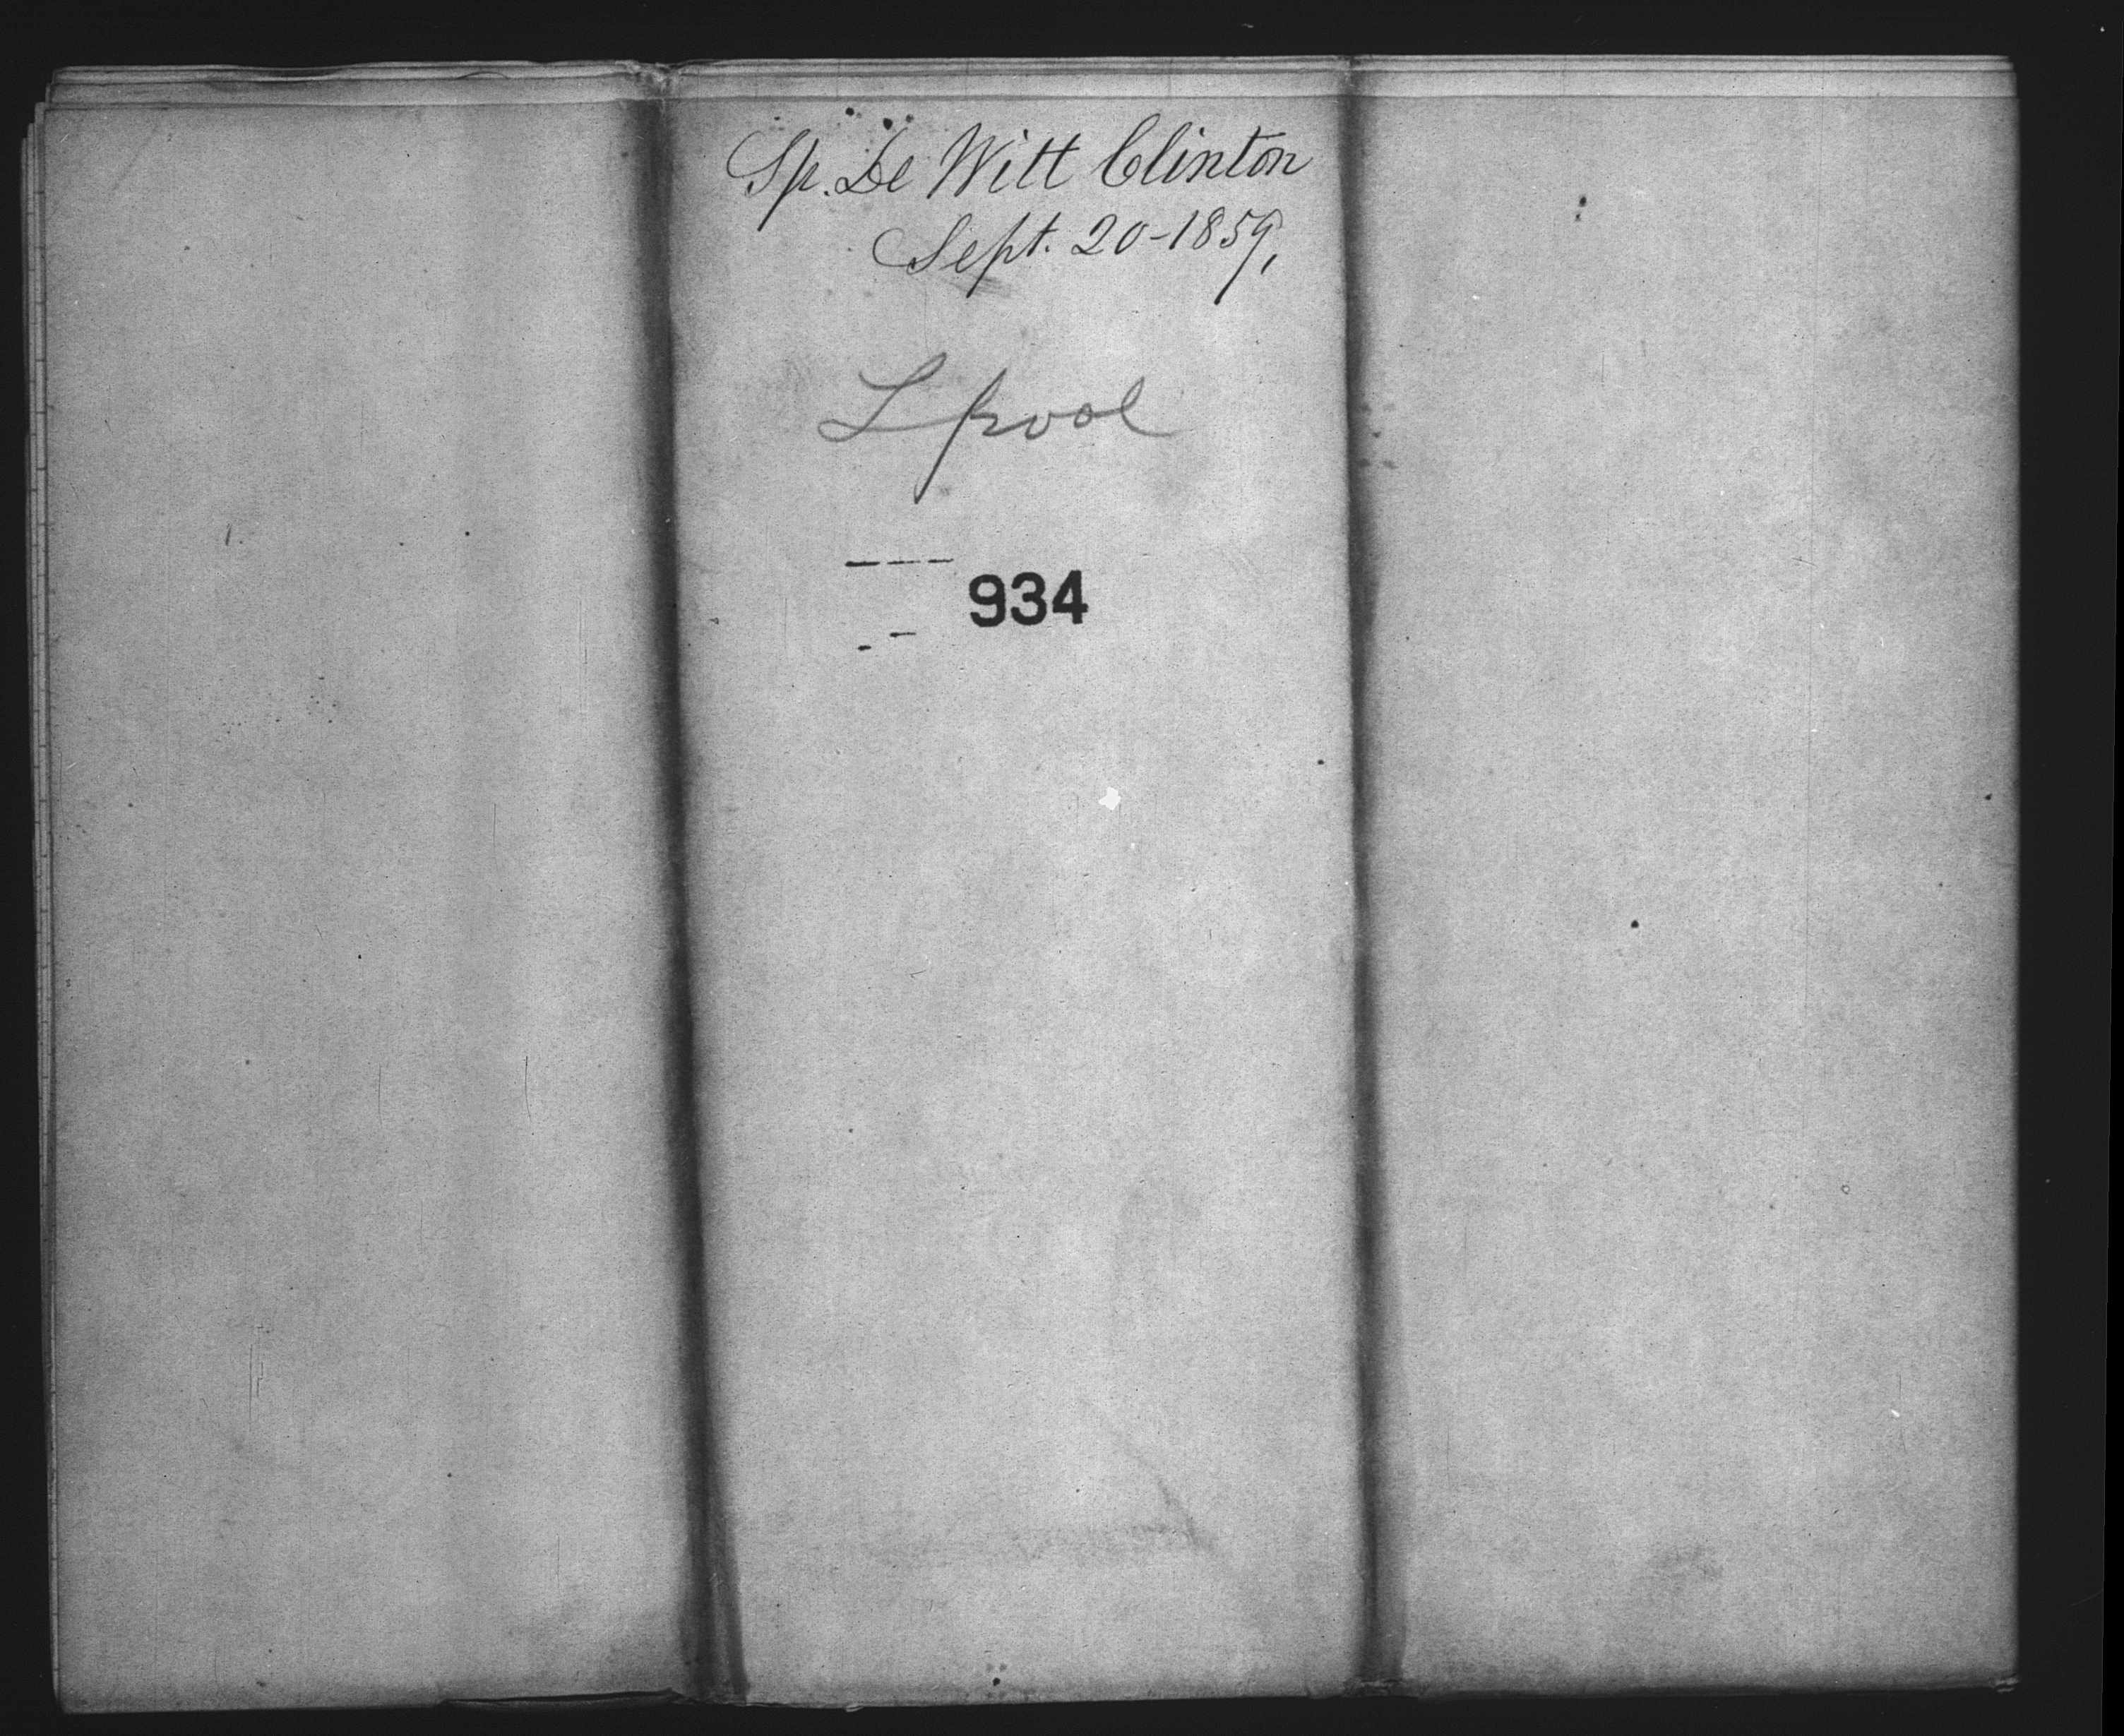 Sp. De Witt Clinton
Sept. 20-1859,
L pool
934